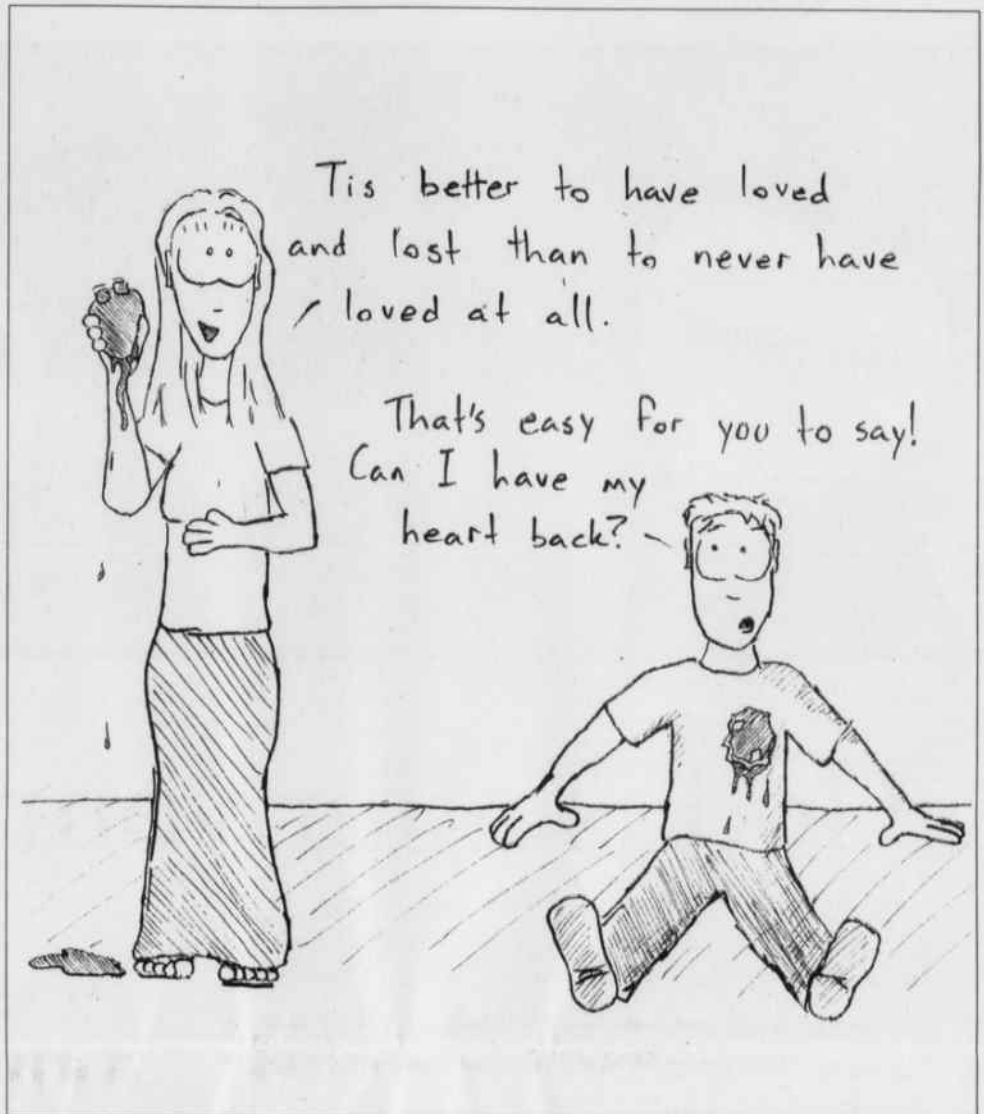 Tis better to have loved
and lost than to never have
loved at all.
That's easy for you to say!
Can I have my
heart back?